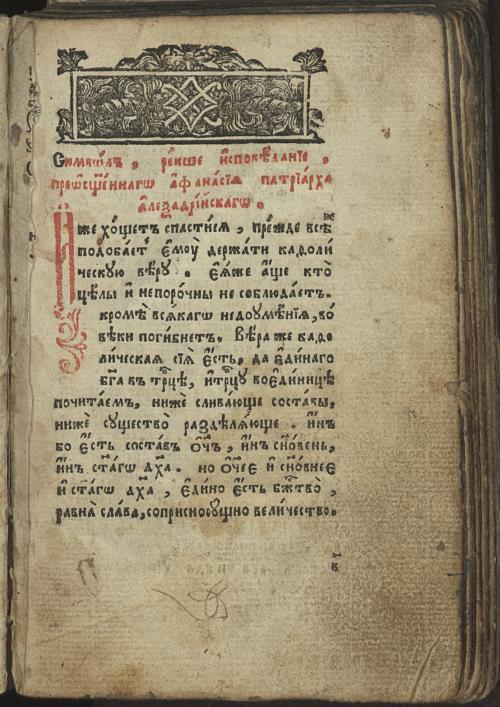 Сѷмво́лъ , ре́кше и҆сповѣ́данїе ,
преѡ҆сщ҃е́ннагѡ а҆ѳана́сїѧ патрїа́рха
а҆леѯадрі́йскагѡ .
И҆́же хо́щетъ спасти́сѧ , пре́жде всѣ́х
подоба́етъ є҆мꙋ̀ держа́ти каѳоли́
ческую вѣ́рꙋ . є҆ѧ́же а҆́ще кто̀
цѣ́лы и҆ непоро́чны не соблюда́етъ .
кромѣ̀ всѧ́кагѡ недоꙋмѣ́нїѧ , во́
вѣки поги́бнетъ . Вѣ́ра же каѳо
ли́ческаѧ сїѧ̀ є҆́сть , да є҆ди́наго
бг҃а въ трⷪ҇цѣ , и҆ трⷪ҇цꙋ во є҆ди́ницѣ
почита́емъ , ниже́ слива́юще соста́вы ,
ниже́ сꙋщество̀ раздѣлѧ́юще . и҆́нъ
бо є҆́сть соста́въ ѻ҆́ч҃ь , и҆́нъ сн҃о́вень ,
и҆́нъ ст҃а́гѡ дх҃а . но ѻ҆́ч҃ее и҆ сн҃о́внее
и҆ ст҃а́гѡ дх҃а , є҆ди́но є҆́сть бж҃тво̀ ,
ра́вна сла́ва , соприсносꙋ́щно вели́чество .
в